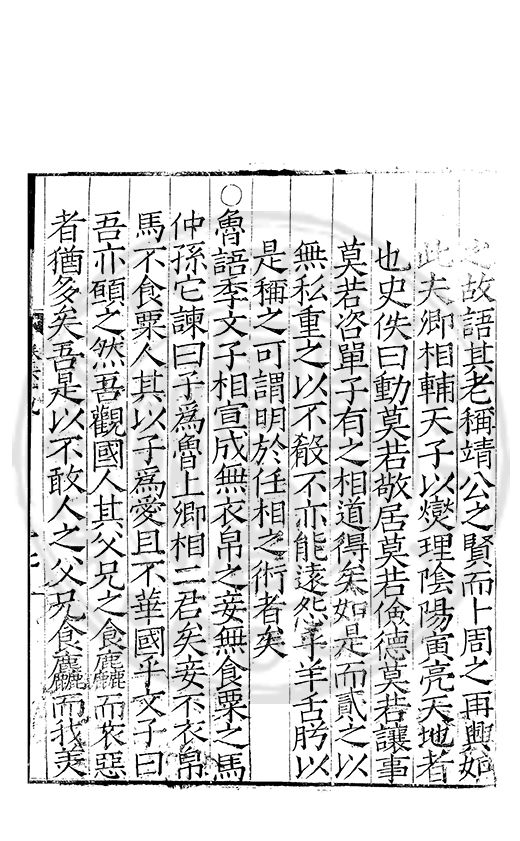 之故語其老稱靖公之賢而卜周之再興如
此夫卿相輔天子以燮理陰陽寅亮天地者
也史佚曰動莫若敬居莫若儉德莫若讓事
莫若咨單子有之相道得矣如是而貳之以
無私重之以不殽不亦能遠怨乎羊舌肸以
是稱之可謂明於任相之術者矣
○魯語季文子相宣成無衣帛之妾無食粟之馬
仲孫它諫曰子為魯上卿相二君矣妾不衣帛
馬不食粟人其以子為愛且不華國乎文子曰
吾亦願之然吾觀國人其父兄之食麤而衣惡
者猶多矣吾是以不敢人之父兄食麤而我美